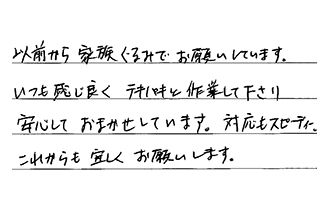 以前から家族ぐるみでお願いしています。
いつも感じ良くテキパキと作業して下さり
安心しておまかせしています。対応もスピーディ。
これからも宜しくお願いします。